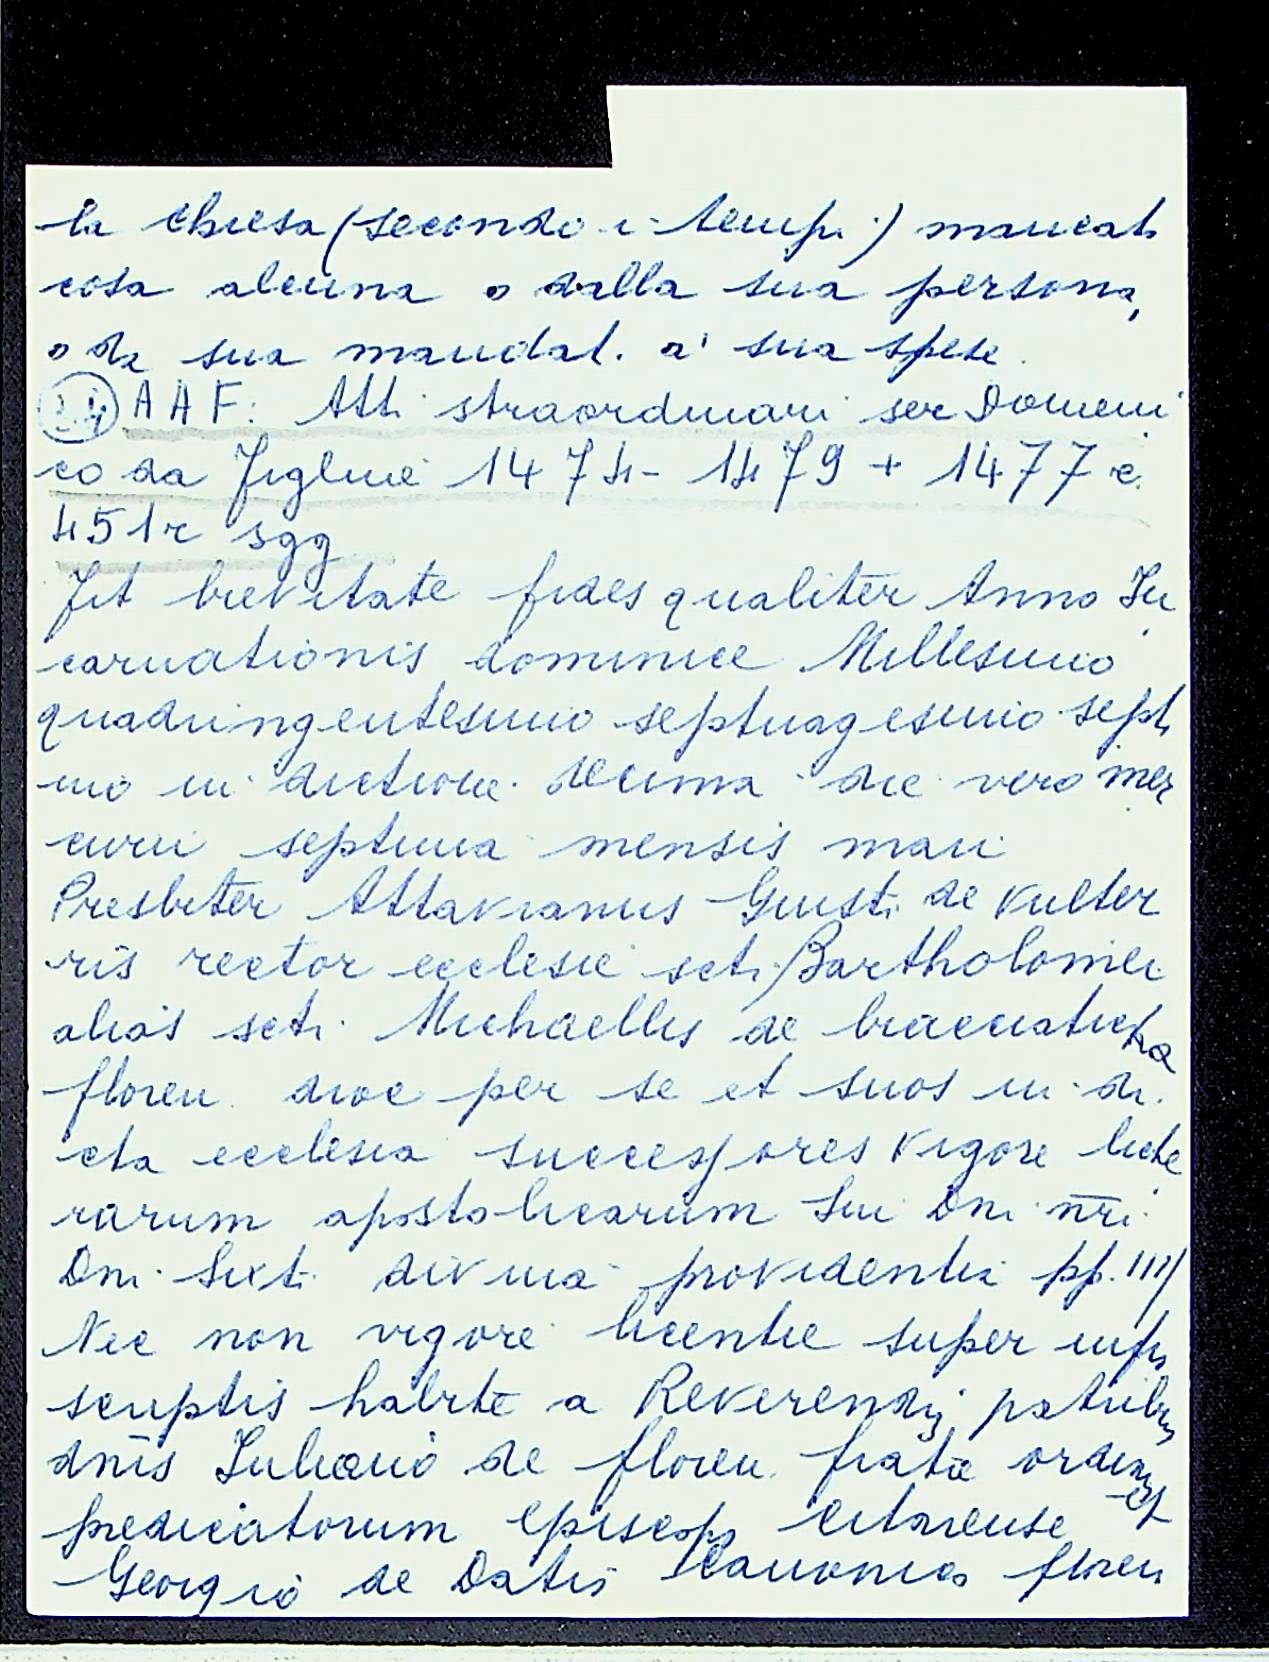 la chiesa (secondo i tempi) mancati
cosa alcuna o dalla sua persona,
o da sua mandat. a' sua spese.
24 AAF. Atti straordinari ser Domeni
co da Figline 1474-1479 + 1477 c.
451r sgg
Fit brevitate fides qualiter Anno In
carnationis dominice Millesimo
quadringentesimo septuagesimo septi
mo in dictione decima die vero mer
curii septima mensis maii
Presbiter Attavianus Giusti de Vulter
ris rector ecclesie scti Bartholomei
alias scti Michaellis de
floren dioc per se et suos in di
cta ecclesia successores vigore licte
rarum apostolicarum Smi Dni nr̄i
Dni Sixti divina providentia pp. IIII
Nec non vigore licentie super infra
scriptis habite a Reverendis patribus
dnis Juliano de floren fratre ordinis
predicatorum episcopo et
Georgio de Datis Canonico floren